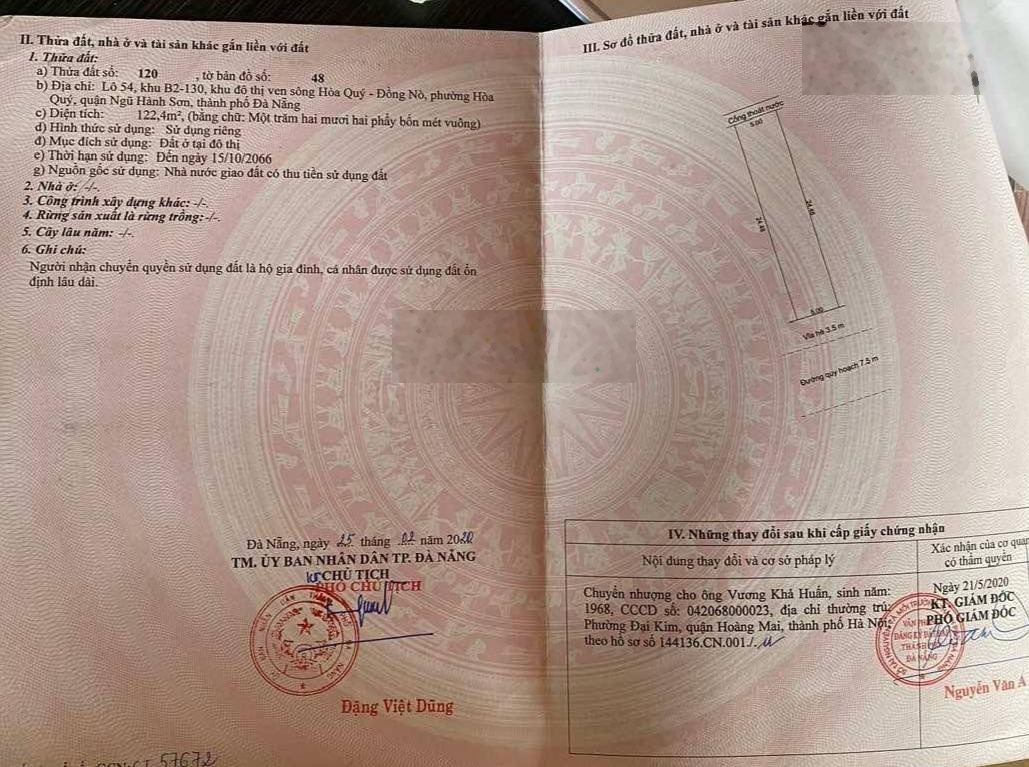 II. Thửa đất, nhà ở và tài sản khác gắn liền với đất
1. Thửa đất:
a) Thửa đất số: 120 , tờ bản đồ số: 48
b) Địa chỉ: Lô 54, khu B2-130, khu đô thị ven sông Hòa Quý - Đồng Nò, phường Hòa
Quý, quận Ngũ Hành Sơn, thành phố Đà Nẵng
c) Diện tích: 122,4m², (bằng chữ: Một trăm hai mươi hai phẩy bốn mét vuông)
d) Hình thức sử dụng: Sử dụng riêng
đ) Mục đích sử dụng: Đất ở tại đô thị
e) Thời hạn sử dụng: Đến ngày 15/10/2066
g) Nguồn gốc sử dụng: Nhà nước giao đất có thu tiền sử dụng đất
2. Nhà ở: -/-.
3. Công trình xây dựng khác: -/-.
4. Rừng sản xuất là rừng trồng: -/-.
5. Cây lâu năm: -/-.
6. Ghi chú:
Người nhận chuyển quyền sử dụng đất là hộ gia đình, cá nhân được sử dụng đất ổn
định lâu dài.
Đà Nẵng, ngày 25 tháng 02 năm 2020
TM. ỦY BAN NHÂN DÂN TP. ĐÀ NẴNG
KT CHỦ TỊCH
PHÓ CHỦ TỊCH
Đặng Việt Dũng
57672
III. Sơ đồ thửa đất, nhà ở và tài sản khác gắn liền với đất
Cống thoát nước
5.00
24.48
24.48
5.00
Vỉa hè 3.5 m
Đường quy hoạch 7.5 m
IV. Những thay đổi sau khi cấp giấy chứng nhận
Nội dung thay đổi và cơ sở pháp lý
Xác nhận của cơ quan
có thẩm quyền
Chuyển nhượng cho ông Vương Khả Huấn, sinh năm:
1968, CCCD số: 042068000023, địa chỉ thường trú:
Phường Đại Kim, quận Hoàng Mai, thành phố Hà Nội;
theo hồ sơ số 144136.CN.001./.
Ngày 21/5/2020
KT. GIÁM ĐỐC
PHÓ GIÁM ĐỐC
VĂN PHÒNG
ĐĂNG KÝ ĐẤT ĐAI
THÀNH PHỐ
ĐÀ NẴNG
Nguyễn Văn A